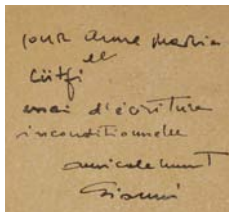 pour Anna Maria
et
Lütfi
essai d'écriture
inconditionnelle
amicalement
Gianni